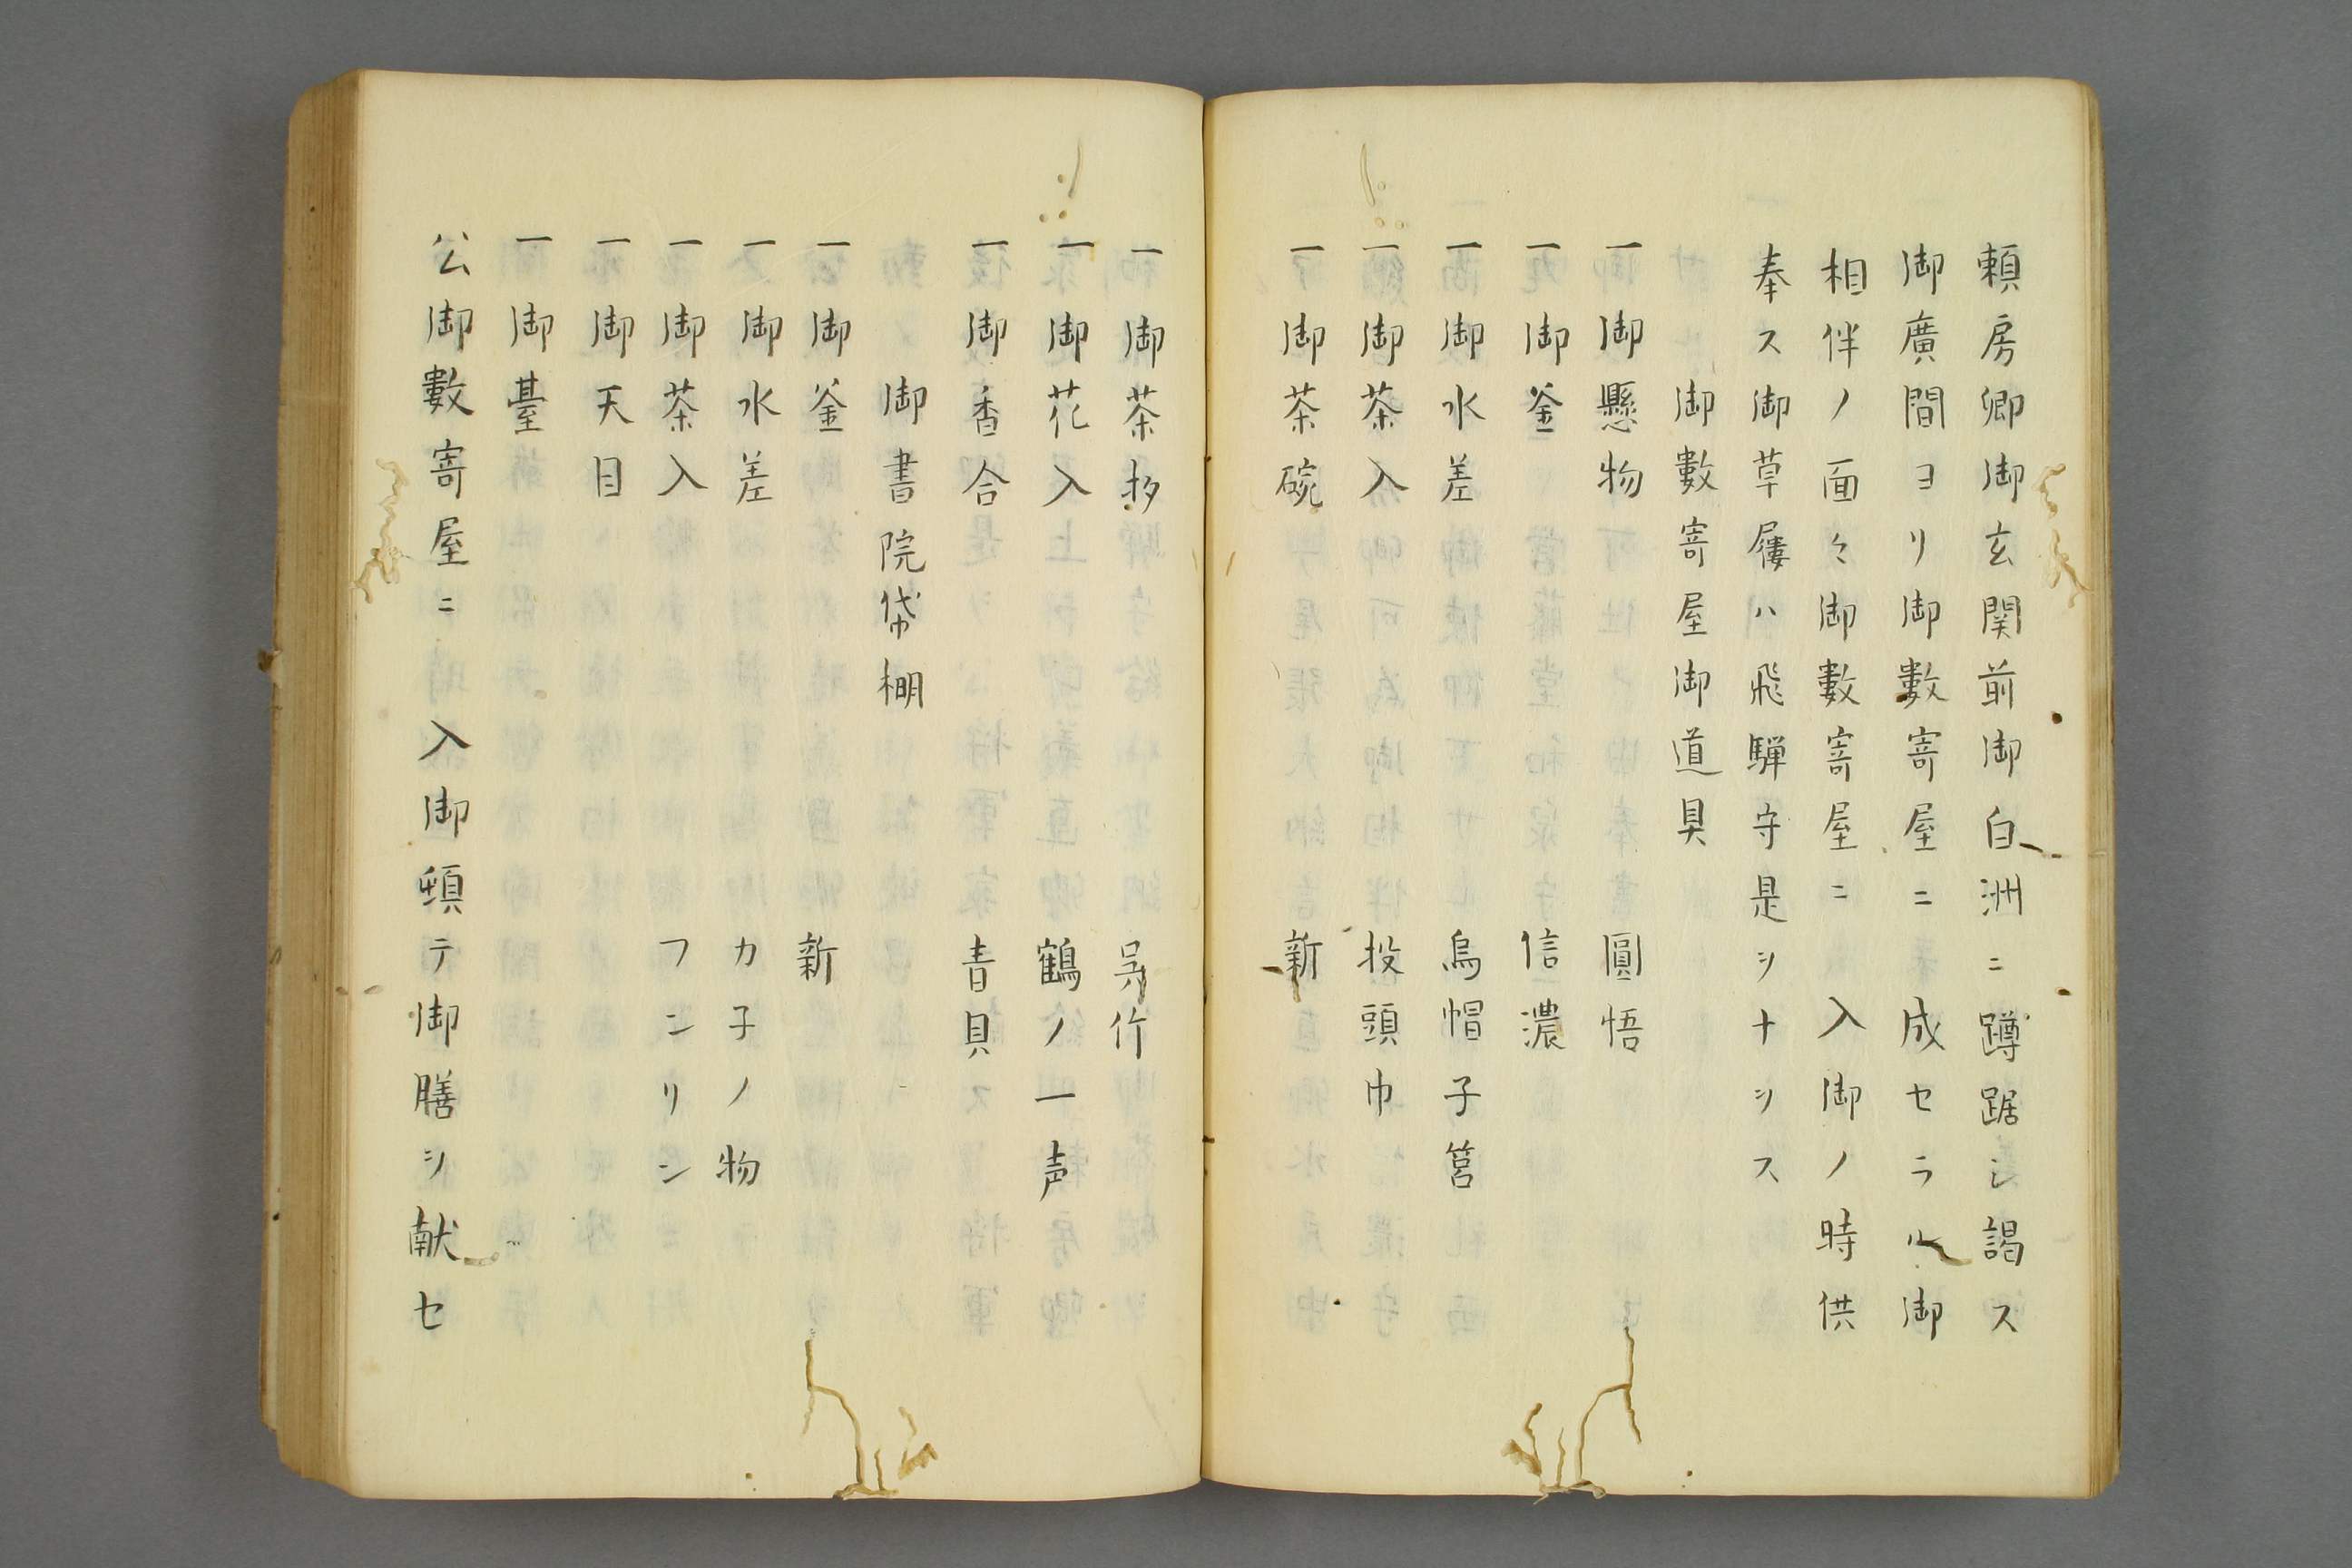 頼房卿御玄関前御白洲ニ蹲踞シ謁ス
御廣間ヨリ御數寄屋ニ　成セラル御
相伴ノ面々御數寄屋ニ　入御ノ時供
奉ス御草屨ハ飛騨守是ヲナヲス
御數寄屋御道具
一御懸物　圓悟
一御釜　信濃
一御水差　烏帽子筥
一御茶入　投頭巾
一御茶碗　新
一御茶杓　呉竹
一御花入　鶴ノ一声
一御香合　青貝
御書院袋棚
一御釜　新
一御水差　カ子ノ物
一御茶入　フンリン
一御天目
一御臺
公御數寄屋ニ　入御頓テ御膳ヲ献セ